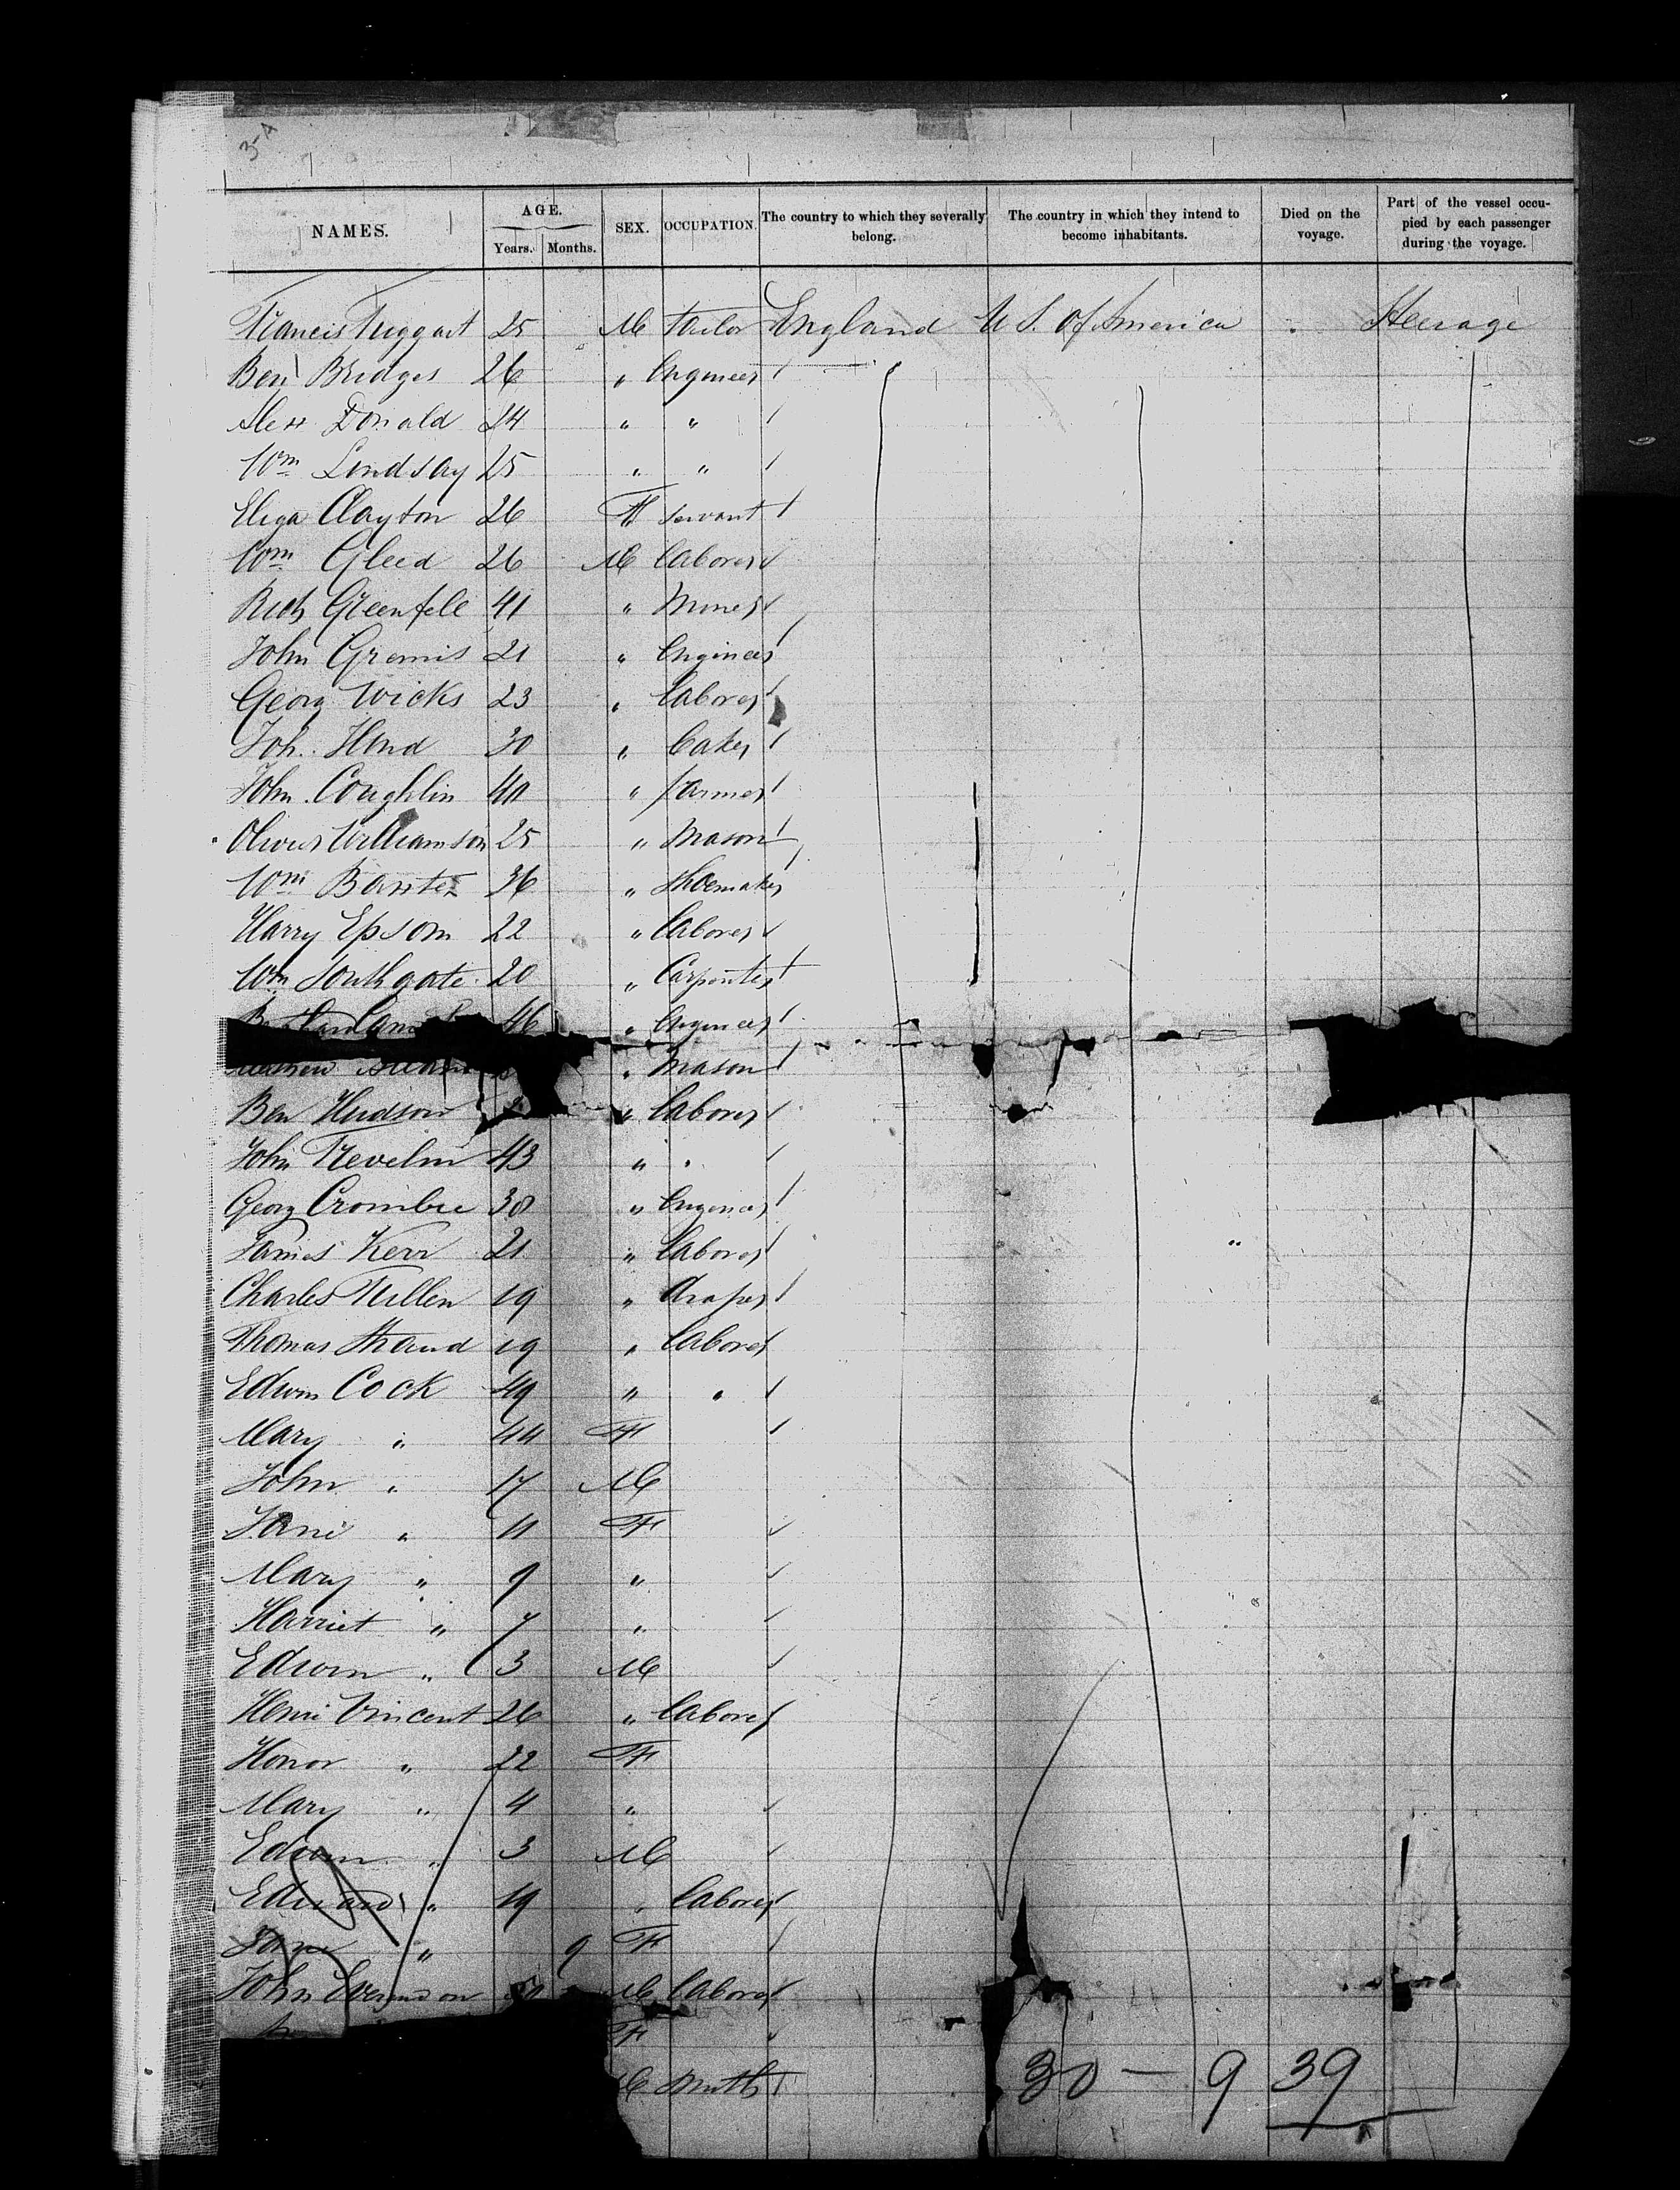 3-A
NAMES. AGE. SEX. OCCUPATION. The country to which they severally belong. The country in which they intend to become inhabitants. Died on the voyage. Part of the vessel occupied by each passenger during the voyage.
Years. Months.
Francis Tuggart 25 M tailor England U S. of America Steerage
Ben Bridges 26 " Engineer
Alex Donald 24 " "
Wm Lindsay 25 " "
Eliza Clayton 26 F servant
Wm Gleed 26 M laborer
Rich Greenfell 41 " Miner
John Gremis 21 " Engineer
Georg Wicks 23 " laborer
Joh. Hind 30 " baker
John Coughlin 40 " farmer
Oliver Williamson 25 " Mason
Wm Baxter 36 " Shoemaker
Harry Epsom 22 " laborer
Wm Southgate 20 " Carpenter
46 " Engineer
" Mason
Ben Hudson " laborer
John Trevelin 43 " "
Georg Crombie 38 " Engineer
James Kerr 21 " laborer
Charles Tullen 19 " draper
Thomas Strand 19 " laborer
Edwin Cock 49 " "
Mary " 44 F
John " 17 M
Jane " 11 F
Mary " 9 "
Harriet " 7 "
Edwin " 3 M
Henri Vincent 26 " laborer
Honor " 22 F
Mary " 4 "
Edwin " 3 M
Edward " 19 " laborer
Jane " 9 F
John M laborer
F
M Smith
30 — 9 39